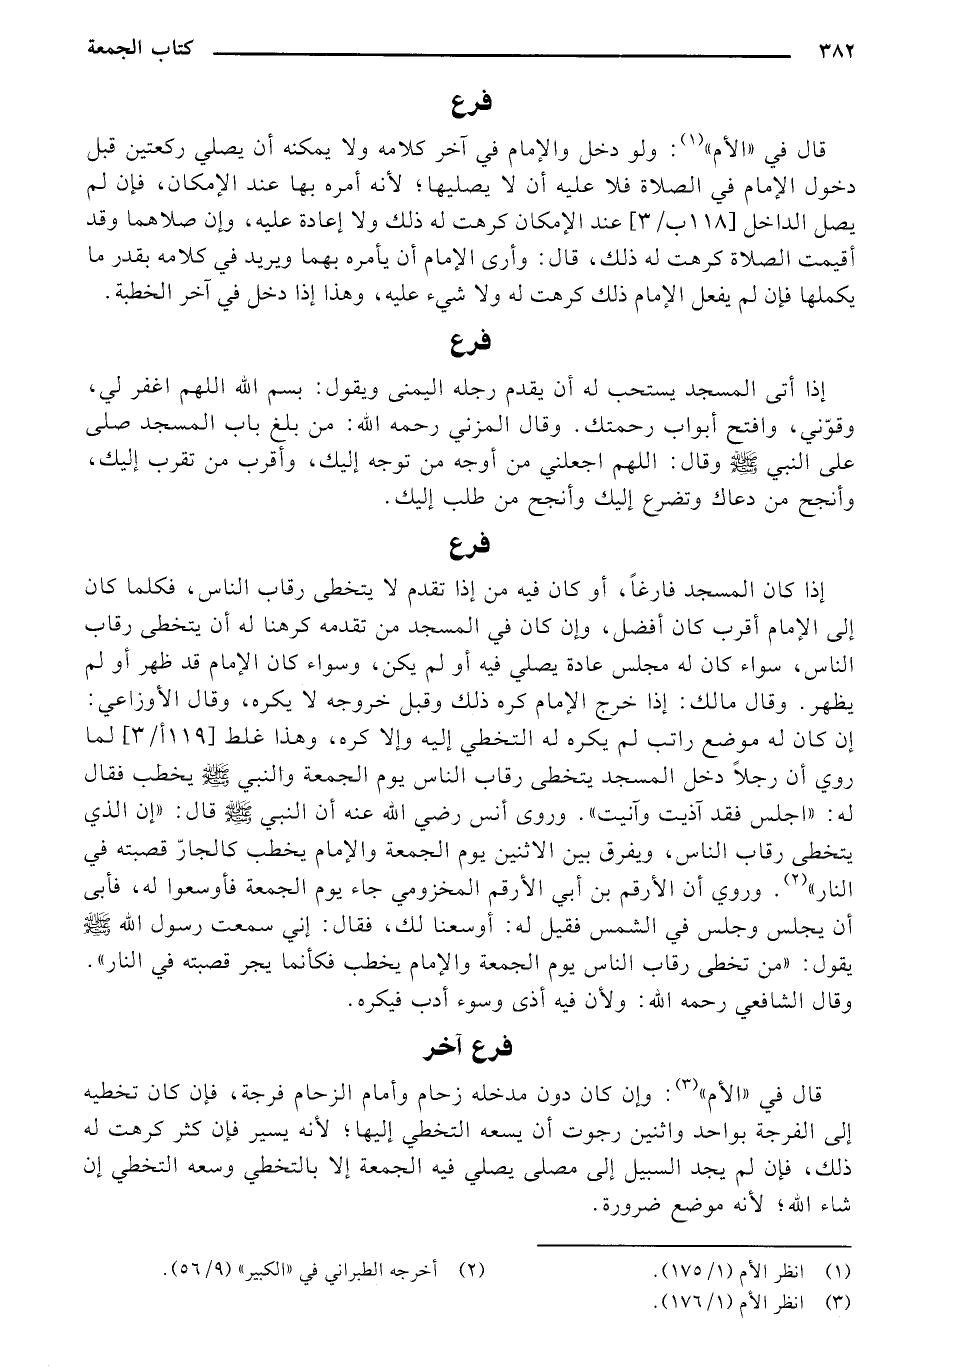 ٣٨٢ كتاب الجمعة
فرع
قال في «الأم»(١): ولو دخل والإمام في آخر كلامه ولا يمكنه أن يصلي ركعتين قبل
دخول الإمام في الصلاة فلا عليه أن لا يصليها؛ لأنه أمره بها عند الإمكان، فإن لم
يصل الداخل [١١٨ب/ ٣] عند الإمكان كرهت له ذلك ولا إعادة عليه، وإن صلاهما وقد
أقيمت الصلاة كرهت له ذلك، قال: وأرى الإمام أن يأمره بهما ويريد في كلامه بقدر ما
يكملها فإن لم يفعل الإمام ذلك كرهت له ولا شيء عليه، وهذا إذا دخل في آخر الخطبة.
فرع
إذا أتى المسجد يستحب له أن يقدم رجله اليمنى ويقول: بسم الله اللهم اغفر لي،
وقوّني، وافتح أبواب رحمتك. وقال المزني رحمه الله: من بلغ باب المسجد صلى
على النبي ﷺ وقال: اللهم اجعلني من أوجه من توجه إليك، وأقرب من تقرب إليك،
وأنجح من دعاك وتضرع إليك وأنجح من طلب إليك.
فرع
إذا كان المسجد فارغاً، أو كان فيه من إذا تقدم لا يتخطى رقاب الناس، فكلما كان
إلى الإمام أقرب كان أفضل، وإن كان في المسجد من تقدمه كرهنا له أن يتخطى رقاب
الناس، سواء كان له مجلس عادة يصلي فيه أو لم يكن، وسواء كان الإمام قد ظهر أو لم
يظهر. وقال مالك: إذا خرج الإمام كره ذلك وقبل خروجه لا يكره، وقال الأوزاعي:
إن كان له موضع راتب لم يكره له التخطي إليه وإلا كره، وهذا غلط [١١٩أ/ ٣] لما
روي أن رجلاً دخل المسجد يتخطى رقاب الناس يوم الجمعة والنبي ﷺ يخطب فقال
له: «اجلس فقد آذيت وآنيت». وروى أنس رضي الله عنه أن النبي ﷺ قال: «إن الذي
يتخطى رقاب الناس، ويفرق بين الاثنين يوم الجمعة والإمام يخطب كالجارّ قصبته في
النار»(٢). وروي أن الأرقم بن أبي الأرقم المخزومي جاء يوم الجمعة فأوسعوا له، فأبى
أن يجلس وجلس في الشمس فقيل له: أوسعنا لك، فقال: إني سمعت رسول الله ﷺ
يقول: «من تخطى رقاب الناس يوم الجمعة والإمام يخطب فكأنما يجر قصبته في النار».
وقال الشافعي رحمه الله: ولأن فيه أذى وسوء أدب فيكره.
فرع آخر
قال في «الأم»(٣): وإن كان دون مدخله زحام وأمام الزحام فرجة، فإن كان تخطيه
إلى الفرجة بواحد واثنين رجوت أن يسعه التخطي إليها؛ لأنه يسير فإن كثر كرهت له
ذلك، فإن لم يجد السبيل إلى مصلى يصلي فيه الجمعة إلا بالتخطي وسعه التخطي إن
شاء الله؛ لأنه موضع ضرورة.
(١) انظر الأم (١/ ١٧٥). (٢) أخرجه الطبراني في «الكبير» (٩/ ٥٦).
(٣) انظر الأم (١/ ١٧٦).